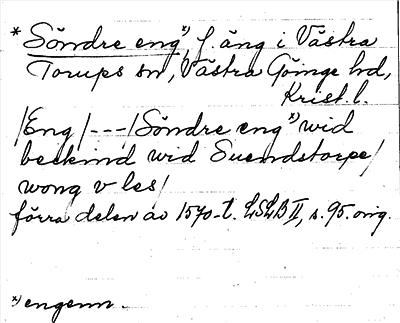 * Söndre eng*), f. äng i Västra
Torups sn, Västra Göinge hd,
Krist. l.
/Eng/---/Söndre eng*) wid
beskind wid Suendstorpe/
wong v les/
förra delen av 1570-t. LSLB II, s. 95. orig.
*) engenn.